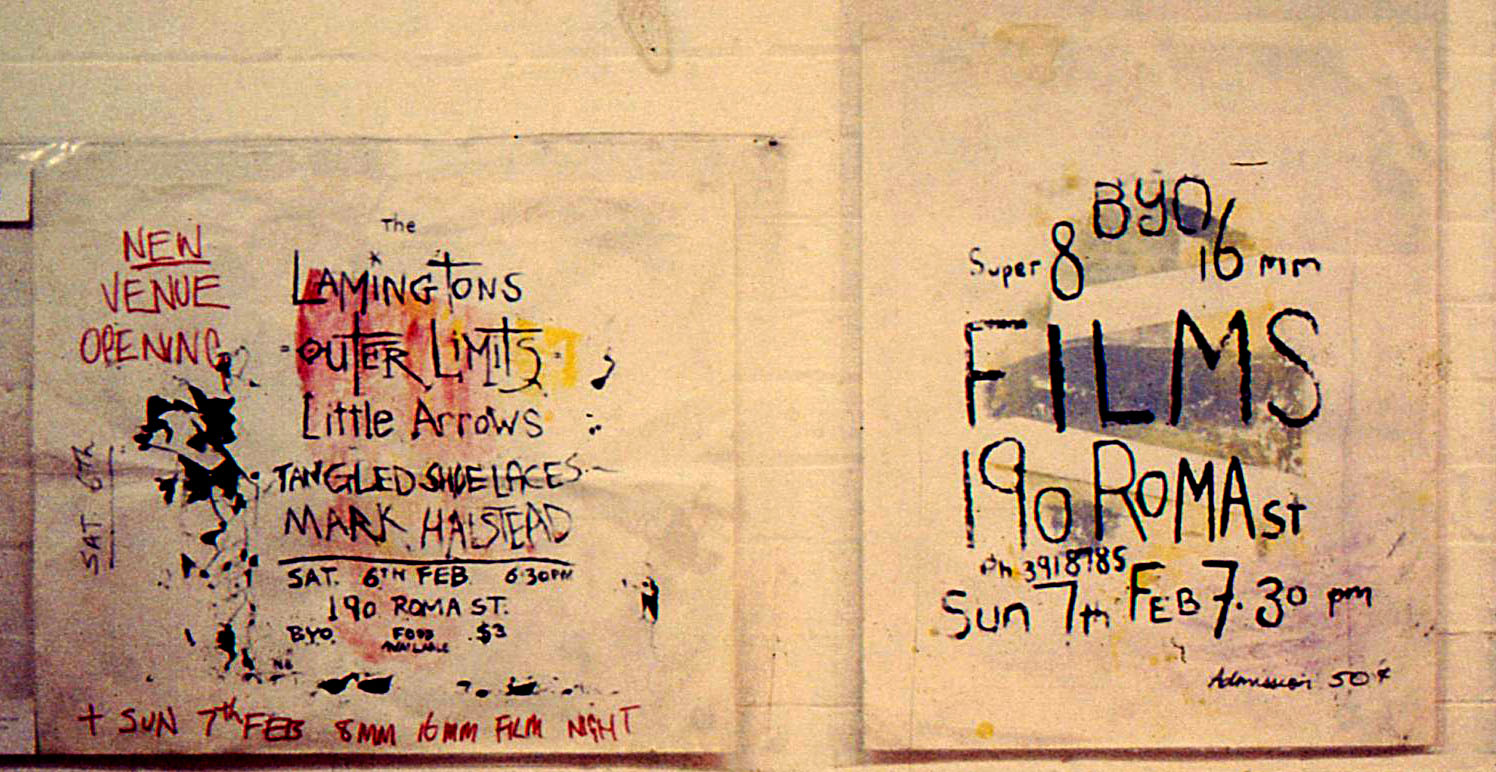 NEW
VENUE
OPENING
SAT. 6TH
The
LAMINGTONS
OUTER LIMITS
Little Arrows
TANGLED SHOELACES
MARK HALSTEAD
SAT. 6TH FEB 6.30PM
190 ROMA ST.
BYO. FOOD AVAILABLE $3
+ SUN 7th FEB 8MM 16MM FILM NIGHT
BYO
Super 8 16 mm
FILMS
190 ROMA st
Ph 3918785
Sun 7th FEB 7.30 pm
Admission 50¢